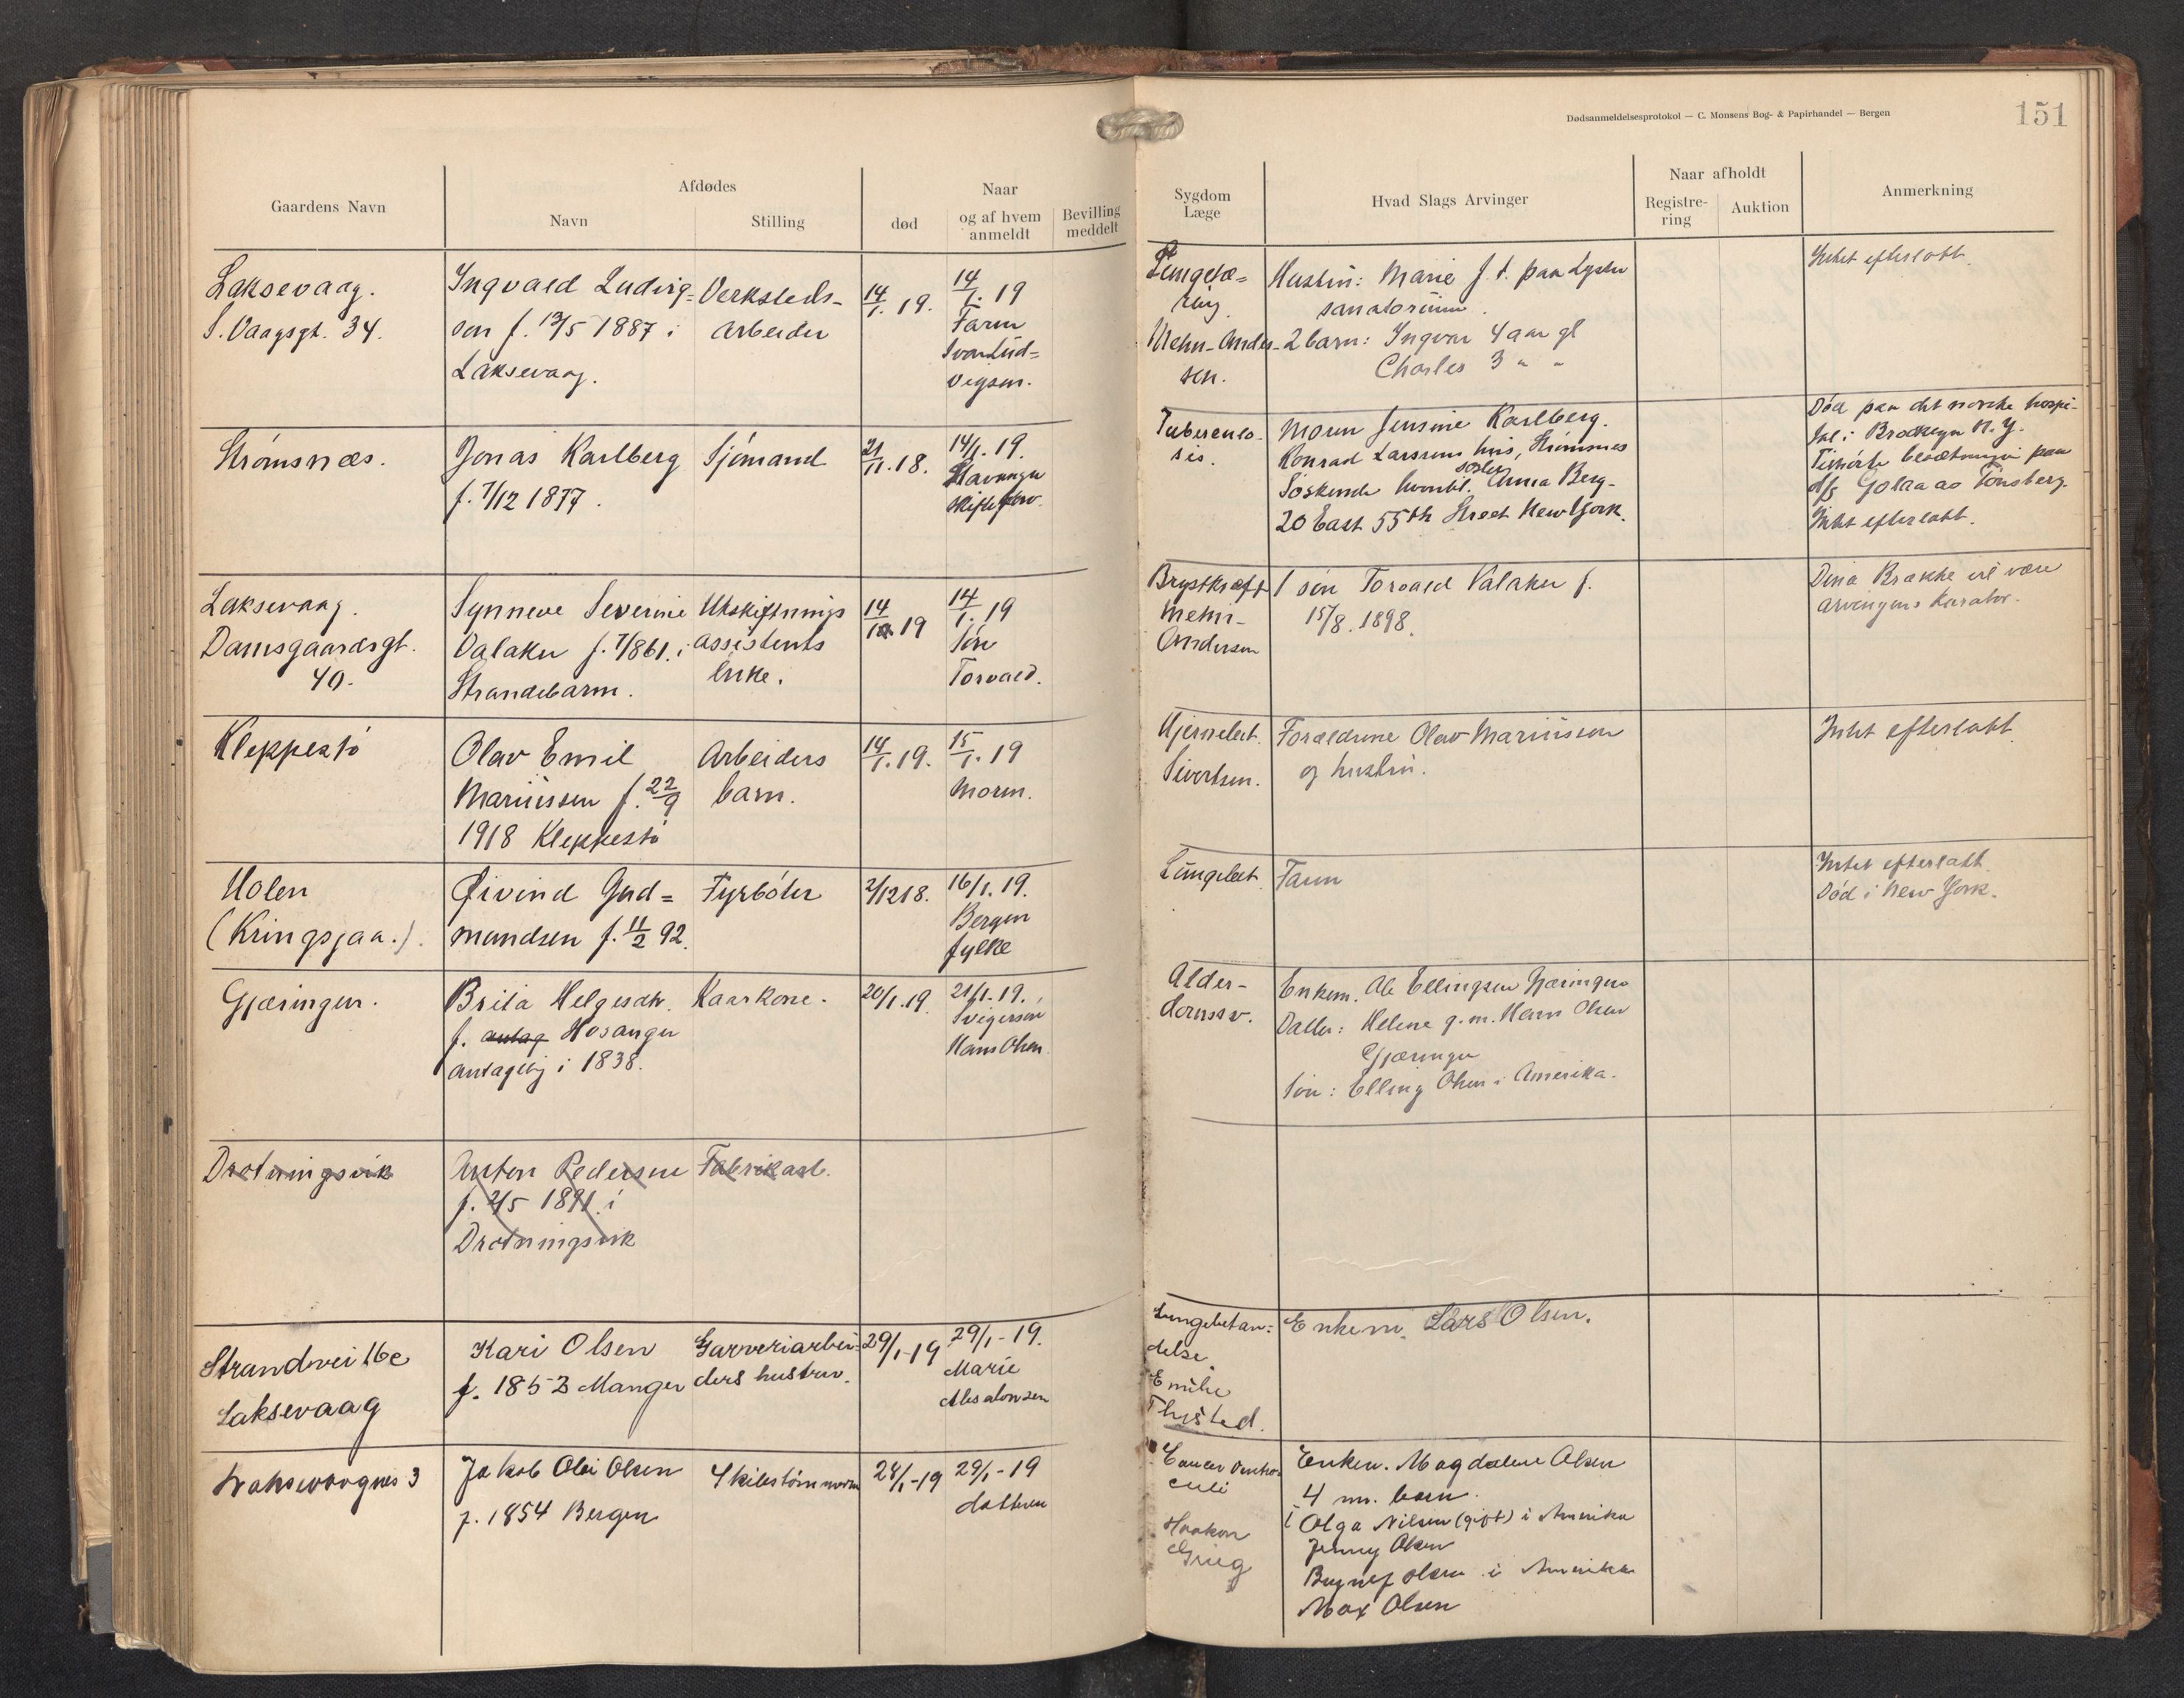 Dødsanmeldelsesprotokol — C. Monsens Bog- & Papirhandel — Bergen
151
Gaardens Navn
Afdødes
Navn
Stilling
død
Naar
og af hvem
anmeldt
Bevilling
meddelt
Sygdom
Læge
Hvad Slags Arvinger
Naar afholdt
Registre-
ring
Auktion
Anmerkning
Laksevaag.
S. Vaagsgt. 34.
Ingvald Ludvig=
sen f. 13/5 1887 i
Laksevaag.
Verksteds-
arbeider
14/1. 19.
14/1. 19
Faren
Ivar Lud=
vigsen.
Lungetæ=
ring
Mehn-Ander-
sen.
Hustru: Marie f. t. paa Lyster
sanatorium.
2 barn: Ingvar 4 aar gl
Charles 3 " "
Intet efterlatt.
Strømsnæs.
Jonas Karlberg
f. 7/12 1877.
Sjømand
21/11. 18.
14/1. 19.
Stavanger
skifteforv.
Tuberculo-
sis.
Moren Jensine Karlberg.
Konrad Larssens hus, Strømsnes
Søskende hvoribl. søster Anna Berg-
20 East 55th Street New York.
Død paa det norske hospi-
tal i Brooklyn N.Y.
Tilhørte besætningen paa
d/s Golaa av Tønsberg.
Intet efterlatt.
Laksevaag.
Damsgaardsgt.
40.
Synneve Severine
Valaker f. 7/861. i
Strandebarm.
Utskiftnings
assistents
enke.
14/1 19
14/1. 19
Søn
Torvald.
Brystkræft
Mehn-
Andersen
1 søn Torvald Valaker f.
15/8. 1898.
Dina Brække vil være
arvingens kurator.
Kleppestø
Olav Emil
Mariussen f. 22/9
1918 Kleppestø
Arbeiders
barn.
14/1. 19.
15/1. 19
Moren.
Hjernebet.
Sivertsen.
Forældrene Olav Mariussen
og hustru.
Intet efterlatt
Holen
(Kringsjaa.).
Øivind Gud=
mundsen f. 11/2 92.
Fyrbøter
2/12 18.
16/1. 19.
Bergen
fylke
Lungebet.
Faren
Intet efterlatt.
Død i New York.
Gjæringen.
Brita Helgesdtr.
f. antag Hosanger
antagelig i 1838.
Kaarkone.
20/1. 19.
21/1. 19.
Svigersøn
Hans Olsen
Alder-
domssv.
Enkem. Ole Ellingsen Gjæringen
Datter: Helene g. m. Hans Olsen
Gjæringen
Søn: Elling Olsen i Amerika.
Drotningsvik
Anton Pedersen
f. 2/5 1891. i
Drotningsvik
Fabrikarb.
Strandvei 16e
Laksevaag
Kari Olsen
f. 1853 Manger
Garveriarbei-
ders hustru.
29/1-19
29/1-19.
Marie
Absalonsen
Lungebetæn=
delse.
Emilie
Thysted.
Enkem. Lars Olsen.
Laksevaagnes 3
Jakob Olai Olsen
f. 1854 Bergen
Skibstømmerm
28/1-19
29/1-19
datteren
Cancer ventri
culi
Haakon
Grieg
Enken. Magdalene Olsen
4 m. barn.
Olga Nilsen (gift) i Amerika
Jenny Olsen
Olsen i Amerika
Max Olsen